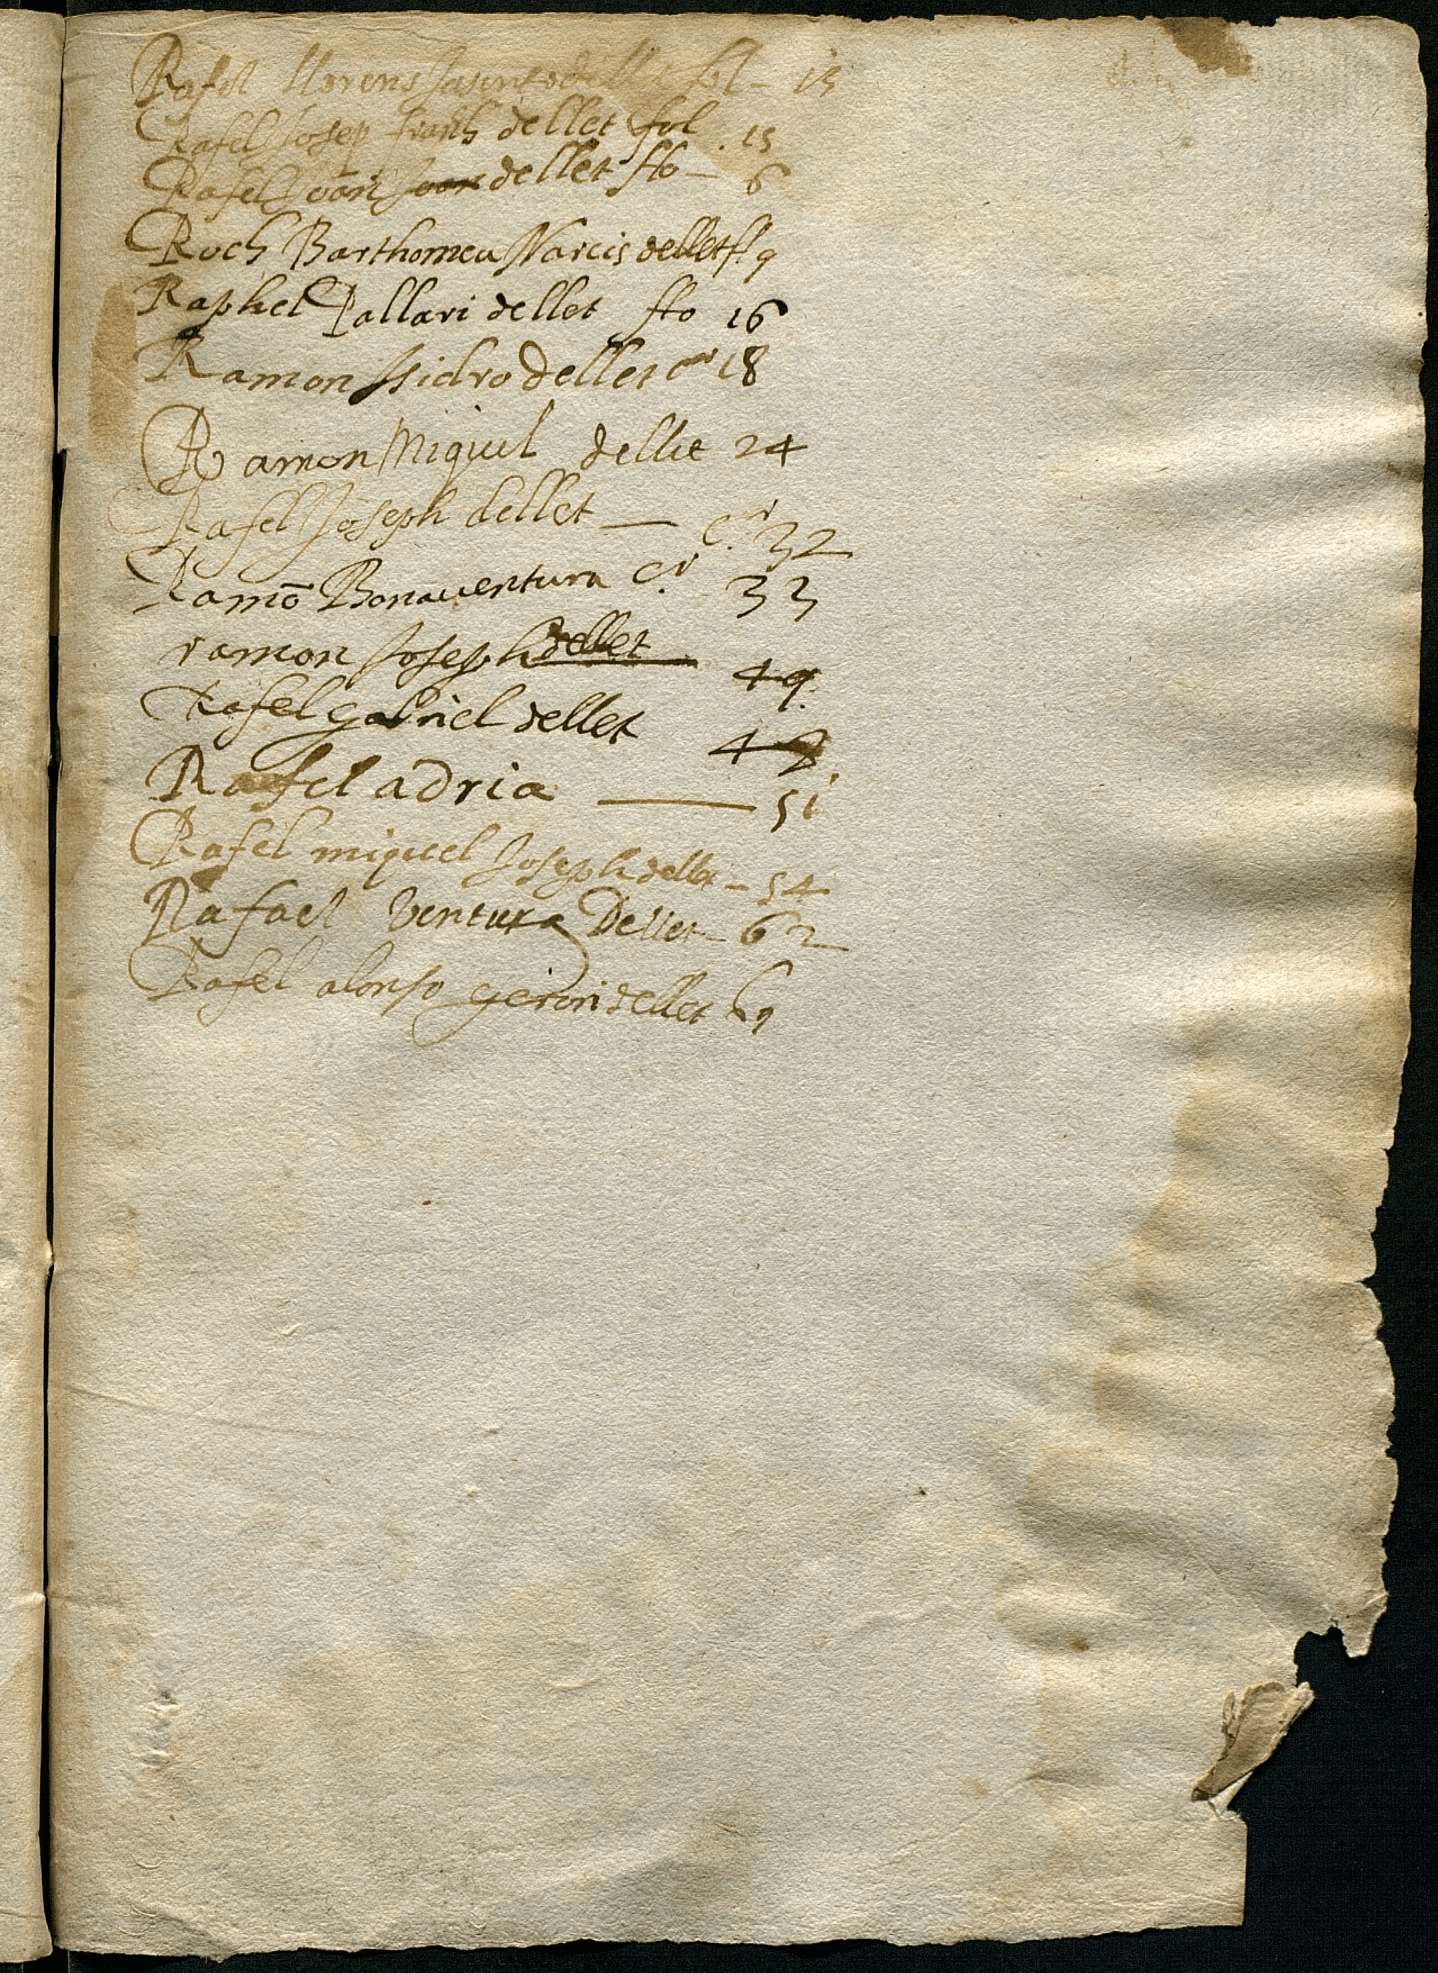 Rafel llorens Jasinto dellet fol - 15
Rafel Josep franh dellet fol . 15
Rafel Joan dellet ffo - 6
Roch Barthomeu Narcis dellet ff. 9
Raphel Pallari dellet ffo 16
Ramon Isidro dellet 18
Ramon Miquel dellet 24
Rafel Joseph dellet — 32
Ramō Bonauentura 33
ramon Joseph dellet 49.
Rafel gabriel dellet 49.
Rafel adria — 51
Rafel miquel Joseph dellet - 54
Rafael Ventura Dellet - 62
Rafel alonso geroni dellet 69